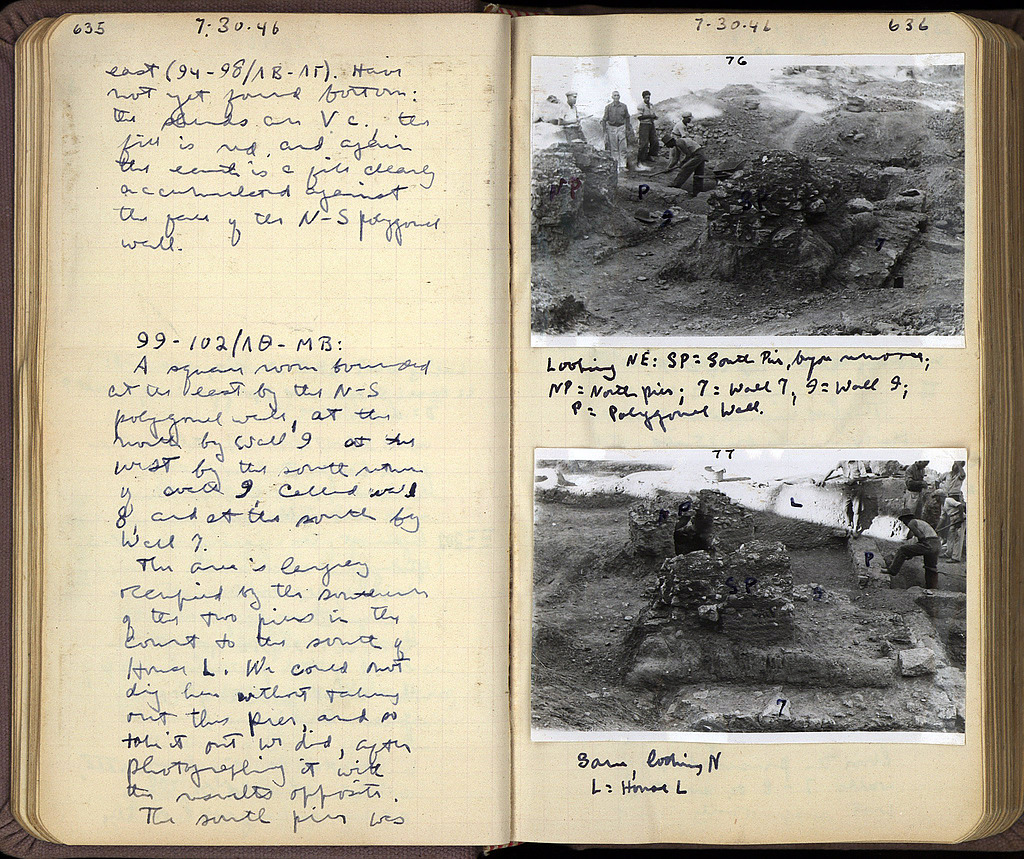 635
7.30.46
east (94-98/ΛΒ-ΛΓ). Have
not yet found bottom:
the sherds are V c., the
fill is red, and again
the earth is a fill clearly
accumulated against
the face of the N-S polygonal
wall.
99-102/ΛΘ-ΜΒ:
A square room bounded
at the east by the N-S
polygonal wall, at the
north by wall 9 at the
west by the south return
of wall 9, called wall
8, and at the south by
Wall 7.
This area is largely
occupied by the southern
of the two piers in the
court to the south of
House L. We could not
dig here without taking
out this pier, and so
take it out we did, after
photographing it with
the results opposite.
The south pier was
7-30.46
636
76
NP
P
9
SP
7
Looking NE: SP = South Pier, before removal;
NP = North pier; 7 = Wall 7, 9 = Wall 9;
P = Polygonal Wall.
77
L
NP
P
SP
9
7
Same, looking N
L = House L